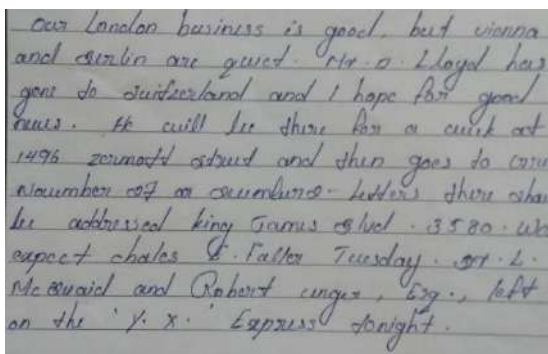 our London business is good, but vienna
and Berlin are quiet. Mr. D. Lloyd has
gone to Switzerland and I hope for good
news. He will be there for a week at
1496 zermott street and then goes to
November 07 or Letters there
be addressed king James Blvd. 3580. We
expect chales E. Faller Tuesday. Dr. L.
Mc Quaid and Robert unger, Esq., left
on the 'y. x.' Express tonight.